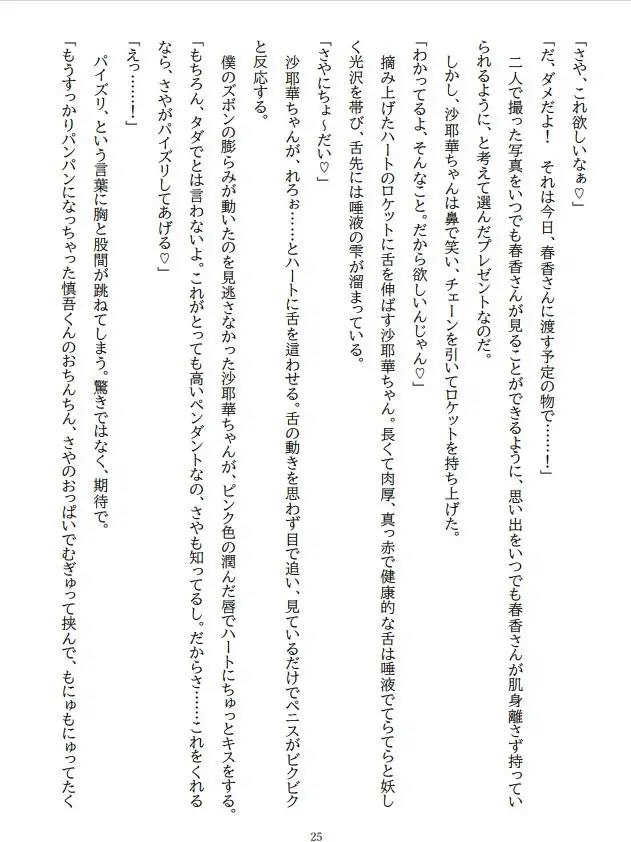 「さや、これ欲しいなぁ♡」
「だ、ダメだよ！　それは今日、春香さんに渡す予定の物で……！」
　二人で撮った写真をいつでも春香さんが見ることができるように、思い出をいつでも春香さんが肌身離さず持ってい
られるように、と考えて選んだプレゼントなのだ。
　しかし、沙耶華ちゃんは鼻で笑い、チェーンを引いてロケットを持ち上げた。
「わかってるよ、そんなこと。だから欲しいんじゃん♡」
　摘み上げたハートのロケットに舌を伸ばす沙耶華ちゃん。長くて肉厚、真っ赤で健康的な舌は唾液でてらてらと妖し
く光沢を帯び、舌先には唾液の雫が溜まっている。
「さやにちょ～だい♡」
　沙耶華ちゃんが、れろぉ……とハートに舌を這わせる。舌の動きを思わず目で追い、見ているだけでペニスがビクビク
と反応する。
　僕のズボンの膨らみが動いたのを見逃さなかった沙耶華ちゃんが、ピンク色の潤んだ唇でハートにちゅっとキスをする。
「もちろん、タダでとは言わないよ。これがとっても高いペンダントなの、さやも知ってるし。だからさ……これをくれる
なら、さやがパイズリしてあげる♡」
「えっ……！」
　パイズリ、という言葉に胸と股間が跳ねてしまう。驚きではなく、期待で。
「もうすっかりパンパンになっちゃった慎吾くんのおちんちん、さやのおっぱいでむぎゅって挟んで、もにゅもにゅってたく
25